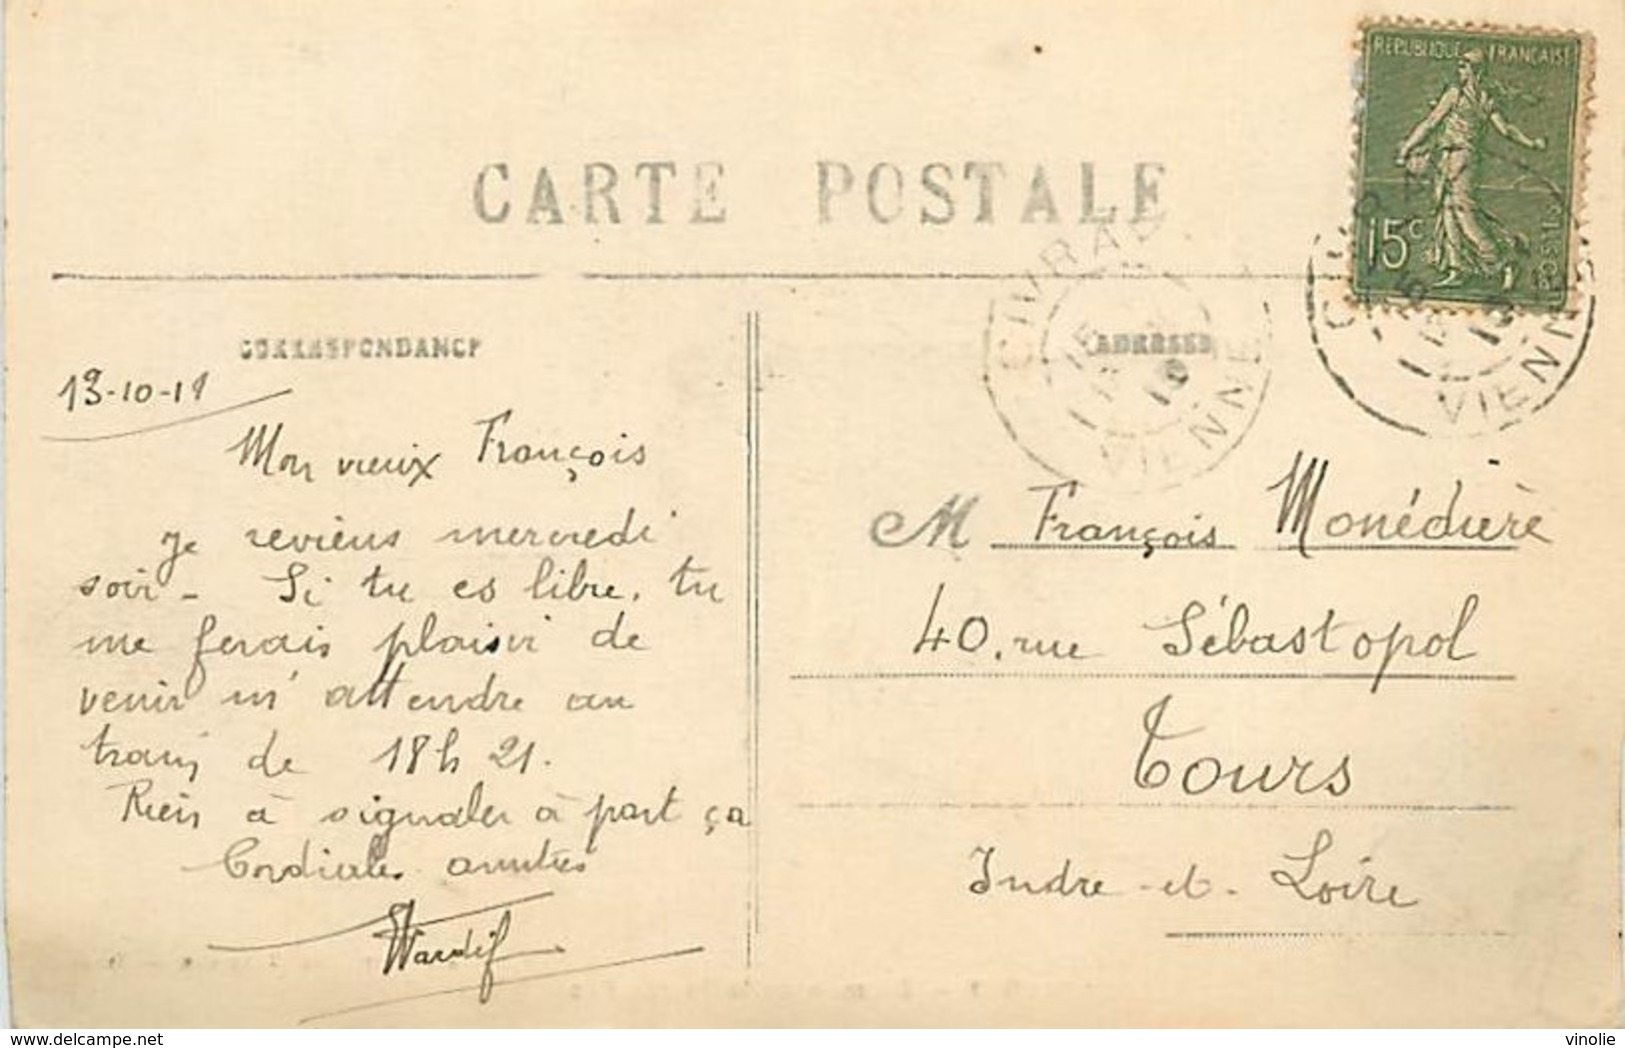 RÉPUBLIQUE FRANÇAISE
15c
POSTES
CARTE POSTALE
CORRESPONDANCE
ADRESSE
CIVRAY
VIENNE
CIVRAY
VIENNE
13-10-19
Mon vieux François
Je reviens mercredi
soir - Si tu es libre, tu
me ferais plaisir de
venir m'attendre au
train de 18h 21.
Rien à signaler à part ça
Cordiales amitiés
M François Monédière
40, rue Sébastopol
Tours
Indre-et-Loire
delcampe.net
vinolie